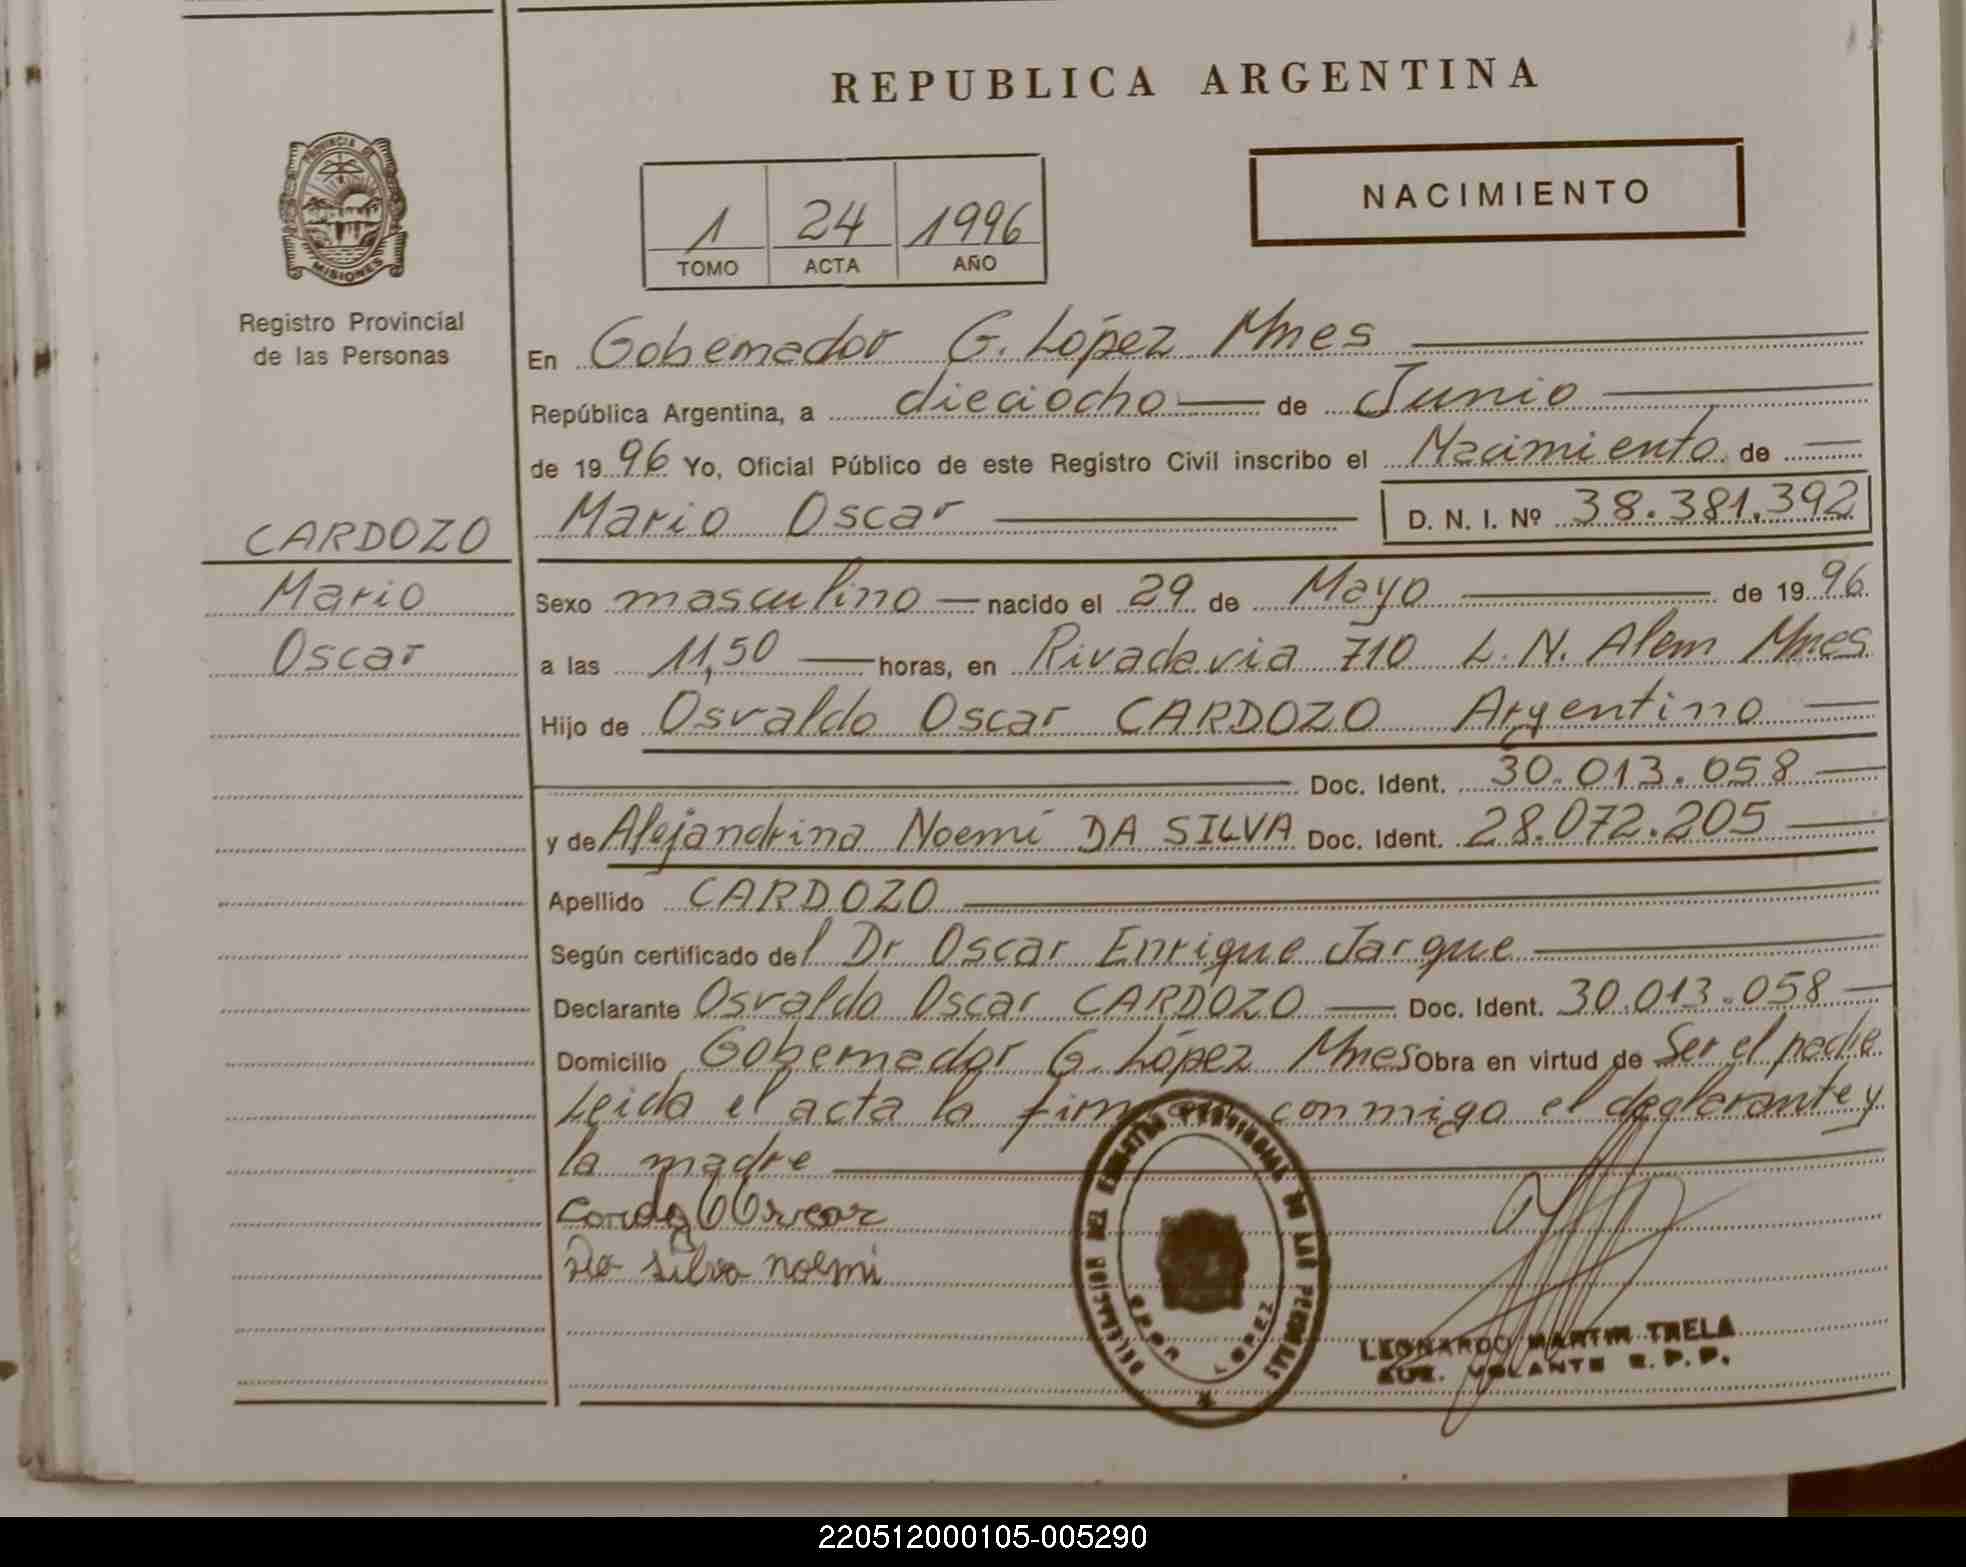 REPUBLICA ARGENTINA
PROVINCIA DE
MISIONES
Registro Provincial
de las Personas
1 24 1996
TOMO ACTA AÑO
NACIMIENTO
En Gobernador G. López Mnes
República Argentina, a dieciocho de Junio
de 1996 Yo, Oficial Público de este Registro Civil inscribo el Nacimiento de
CARDOZO
Mario
Oscar
Mario Oscar D. N. I. Nº 38.381.392
Sexo masculino nacido el 29 de Mayo de 1996
a las 11,50 horas, en Rivadavia 710 L. N. Alem Mnes
Hijo de Osvaldo Oscar CARDOZO Argentino
Doc. Ident. 30.013.058
y de Alejandrina Noemí DA SILVA Doc. Ident. 28.072.205
Apellido CARDOZO
Según certificado del Dr Oscar Enrique Jarque
Declarante Osvaldo Oscar CARDOZO Doc. Ident. 30.013.058
Domicilio Gobernador G. López Mnes Obra en virtud de Ser el padre
Leida el acta la firman conmigo el declarante y
la madre
Da Silva noemi
DELEGACION DEL REGISTRO PROVINCIAL DE LAS PERSONAS
GDOR LOPEZ
LEONARDO MARTIN TRELA
AUX. VOLANTE R. P. P.
220512000105-005290